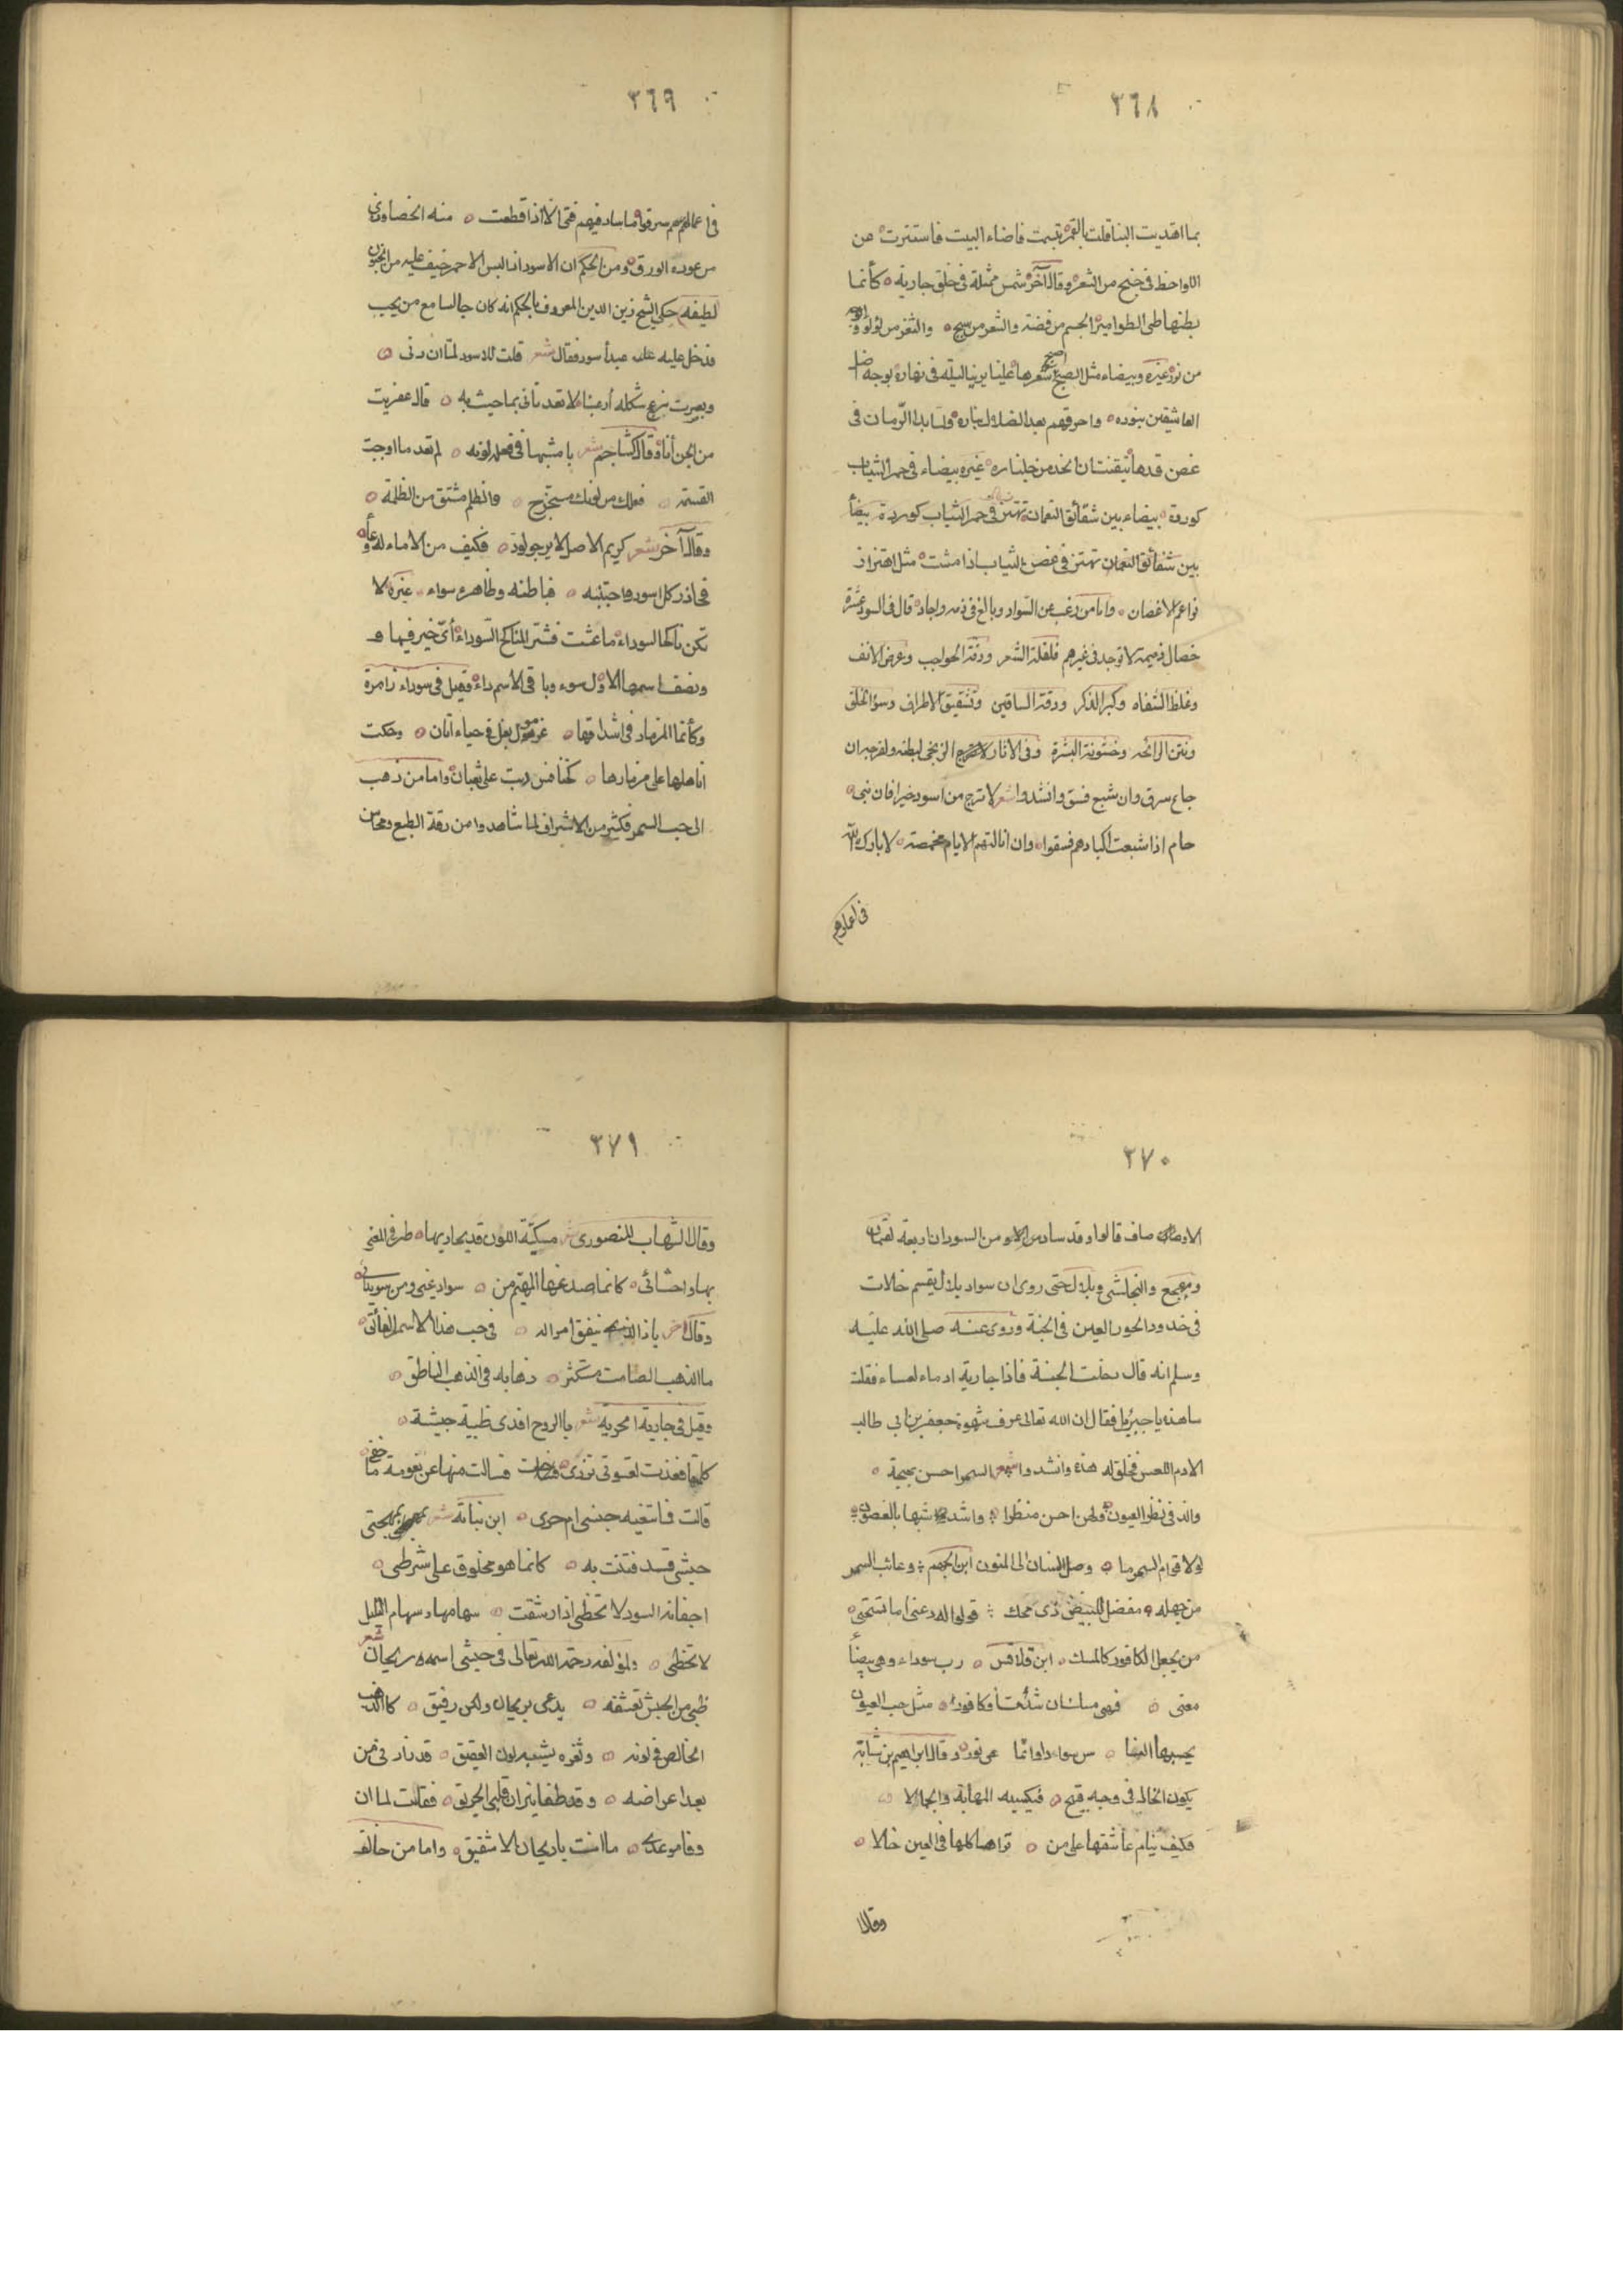 ٣٦٨
بما اهتديت الينا قلت بالقمر تبسمت فاضاء البيت فاستترت من
اللواحظ في جنح من الشعر وقال آخر شمس ممثلة في خلق جارية كأنما
بطنها طى الطوامير الجسم من فضة والشعر من سبج والثغر من لؤلؤ
من نور غيره وبيضاء مثل الصبح اصبح شعرها علينا يرينا ليله في نهاره بوجه اضل
العاشقين بنوره واحرقهم بعد الضلال بناره ولما بدا الرمان في
غصن قدها تيقنت ان الخد من جلناره غيره بيضاء في حمر الثياب
كوردة بيضاء بين شقائق النعمان تهتز في حمر الثياب كوردة بيضاء
بين شقائق النعمان تهتز في غصن الثياب اذا مشت مثل اهتزاز
نواعم الاغصان واما من رغب عن السواد وبالغ في ذمه واجاد قال في السود عشرة
خصال ذميمة لا توجد في غيرهم فلفلة الشعر ورقة الحواجب وعرض الانف
وغلظ الشفاه وكبر الذكر ورقة الساقين وتشقيق الاطراف وسؤ الخلق
ونتن الرائحه وخشونة البشرة وفي الاثار الزنجي لبطنه ولفرجه ان
جاع سرق وان شبع فسق وانشدوا شعر لا ترج من اسود خيرا فان بني
حام اذا شبعت اكبادهم فسقوا وان انالتهم الايام مخمصة لا بارك الله
في اعمارهم
٣٦٩
في اعمارهم سرقوا ما ساد فيهم فتى الا اذا قطعت منه الخصا وذي
من عوده الورق ومن الحكم ان الاسود اذا لبس الاحمر خيف عليه من الجنون
لطيفه حكى الشيخ زين الدين المعروف بالحكم انه كان جالسا مع من يحب
فدخل عليه عبد أسود فقال شعر قلت للاسود لما ان دنى
وبصرت شكله أرعبنا لا تعد تأتي بما حيث به قال عفريت
من الجن أنا وقال كشاجم شعر يا مشبها في فعله لونه لم تعد ما اوجبت
القسمه فعلك من لونك مستخرج والظلم مشتق من الظلمة
وقال آخر شعر كريم الاصل لا يرجو لوذ فكيف من الاماء له وعاه
فحاذر كل اسود واجتنبه فباطنه وظاهره سواء غيره لا
تكن ناكحا لسوداء ما عشت فشر المناكح السوداء أي خير فيها و
ونصف اسمها الاول سوء وباقي الاسم داء وقيل في سوداء زامرة
وكأنما المزمار في اشداقها غرمول بغل في حياء اتان وحكت
اناملها على مزمارها كخنافس دبت على ثعبان واما من ذهب
الى حب السمر فكثير من الاشراف لما شاهدوا من رقة الطبع ومحاسن
٣٧٠
الاوصاف صاف قالوا وقد ساد من السودان اربعة لقمان
ومهجع والنجاشى وبلال حتى روى ان سواد بلال يقسم خالات
في خدود الحور العين في الجنة وروى عنه صلى الله عليه
وسلم انه قال دخلت الجنة فاذا جارية ادماء لعساء فقلت
ما هذه يا جبريل فقال ان الله تعالى عرف شهوة جعفر بن ابي طالب
الادم اللعس فخلق له هذه وانشدوا شعر السمر احسن بهجة
والذ في نظر العيون ولهن احسن منظرا واشد شبها بالغصون
لولا قوام السمر ما وصل اللسان الى المتون ابن الجهم وعائب السمر
من جهله مفضل للبيض ذى محك قولوا له دعنى اما تستحى
من يجعل الكافور كالمسك ابن قلاقس رب سوداء وهي بيضاء
معنى فهى مسك ان شئت أو كافور مثل حب العيون
يحسبها الناس سوادا وانما هي نور وقال ابراهيم بن شبابة
يكون الخال في وجه قبيح فيكسيه المهابة والجمالا
فكيف ينام عاشقها على من تراها كلها في العين خالا
وقال
٣٧١
وقال الشهاب المنصورى مسكية اللون قد يحاديها طرفى للغى
بها واحشائى كانما صدغها المهيمن سواد عينى ومن سويدائى
وقال آخر يا ذا الذي ينفق امواله في حب هذا الاسمر الفائق
ما الذهب الصامت مستكثر ذهابه في الذهب الناطق
وقيل في جارية امحرية شعر يا الروح افدى ظبية حبشة
كلمتها فغدت لقسوتى تزدرى فسالت منها عن نعومة ما خفى
قالت فاستغنيه جنسى امحرى ابن نباتة شعر بمهجتى
حبشى قد فتنت به كانما هو مخلوق على شرطى
اجفانه السود لا تخطى اذا رشقت سهامها وسهام الليل
لا تخطى ولمؤلفه رحمة الله تعالى في حبشى اسمه ريحان شعر
ظبى من الحبش تعشقته يدعى بريحان ولكن رفيق كالذهب
الخالص في لونه وثغره يشبه لون العقيق قد زارنى من
بعد اعراضه وقد طفا نيران قلبى الحريق فقلت لما ان
وفا موعدى ما انت يا ريحان الا شقيق واما من خالف